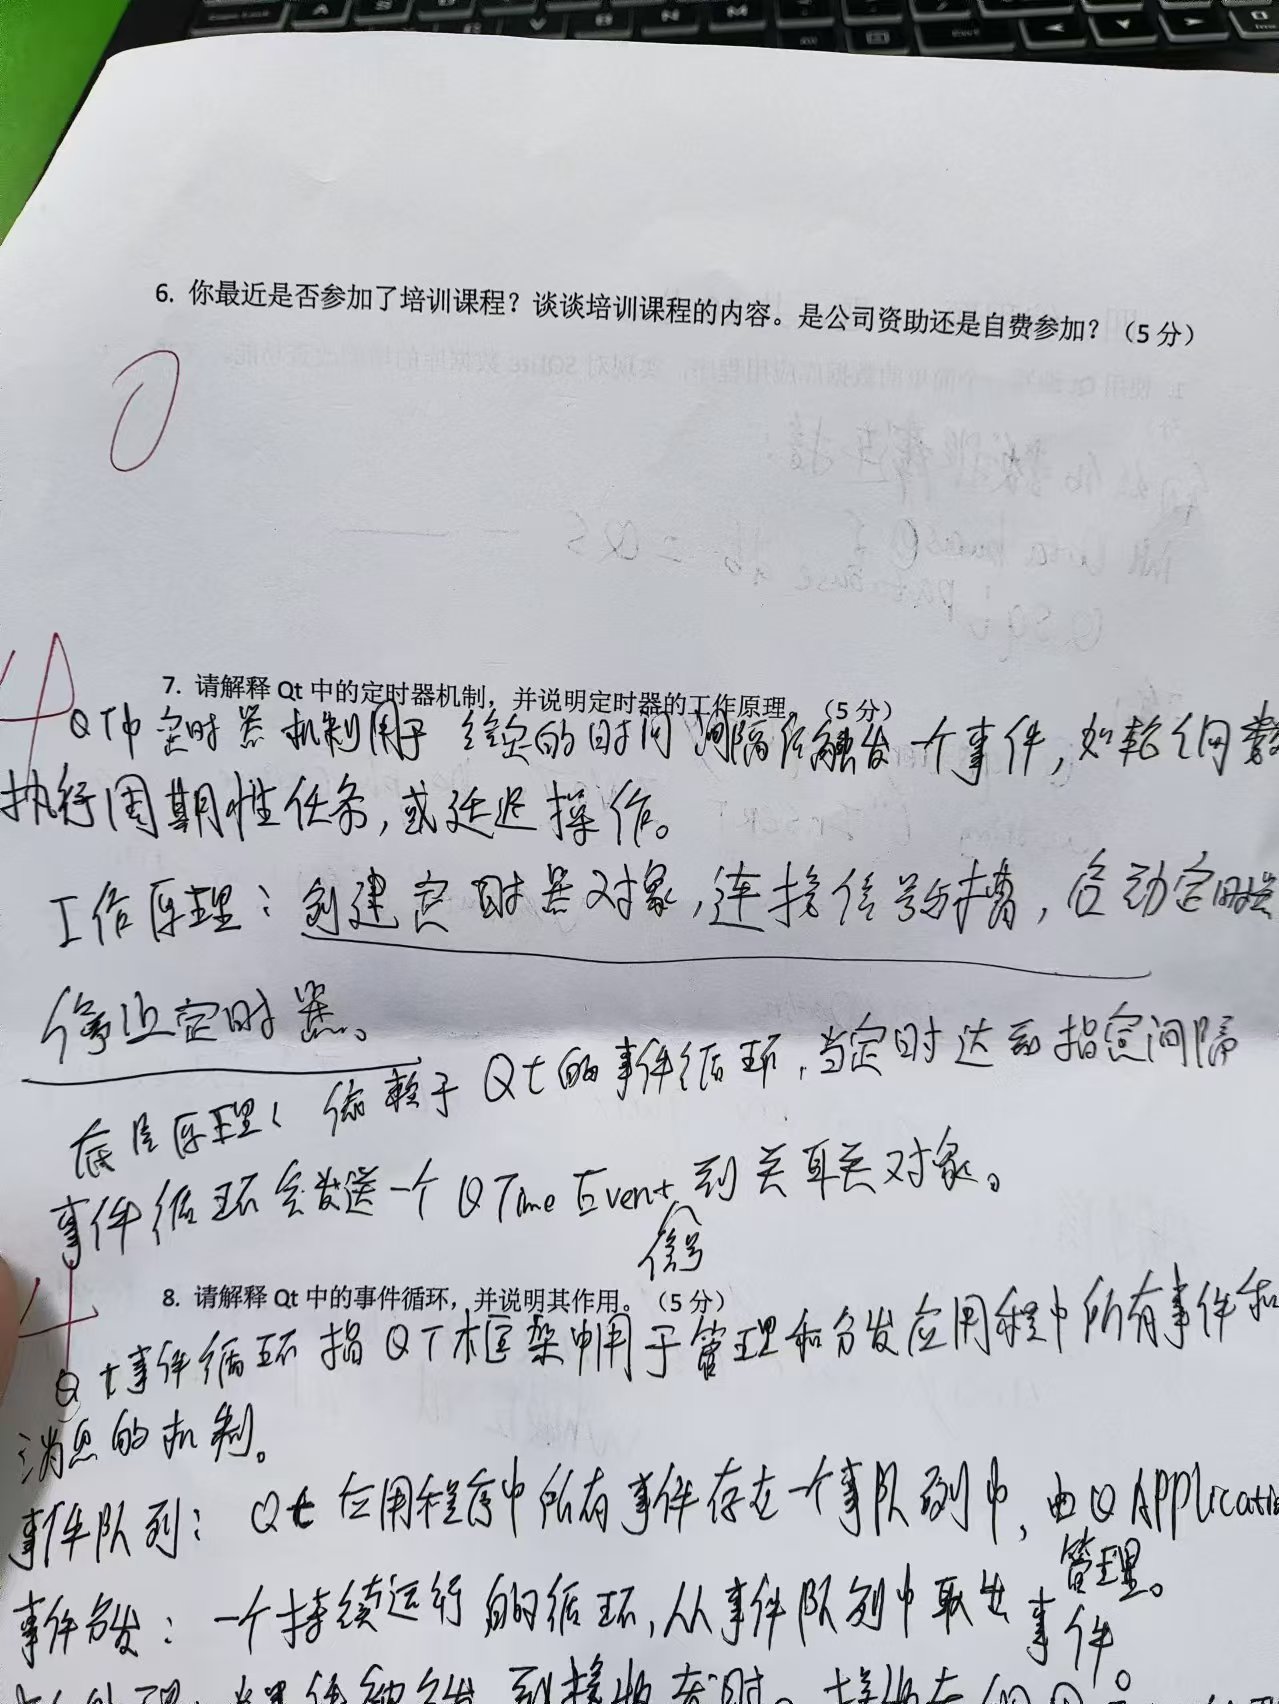 6. 你最近是否参加了培训课程？谈谈培训课程的内容。是公司资助还是自费参加？（5 分）
0
4
7. 请解释 Qt 中的定时器机制，并说明定时器的工作原理。（5 分）
QT中定时器机制用于给定的时间间隔后触发一个事件，如轮询数
执行周期性任务，或延迟操作。
工作原理：创建定时器对象，连接信号与槽，启动定时器
停止定时器。
底层原理：依赖于Qt的事件循环，当定时达到指定间隔
事件循环会发送一个QTimeEvent到关联对象。
信号
4
8. 请解释 Qt 中的事件循环，并说明其作用。（5 分）
Qt事件循环指QT框架中用于管理和分发应用程中所有事件和
消息的机制。
事件队列：Qt应用程序中所有事件存在一个事队列中，由QApplicatio
管理。
事件分发：一个持续运行的循环，从事件队列中取出事件。